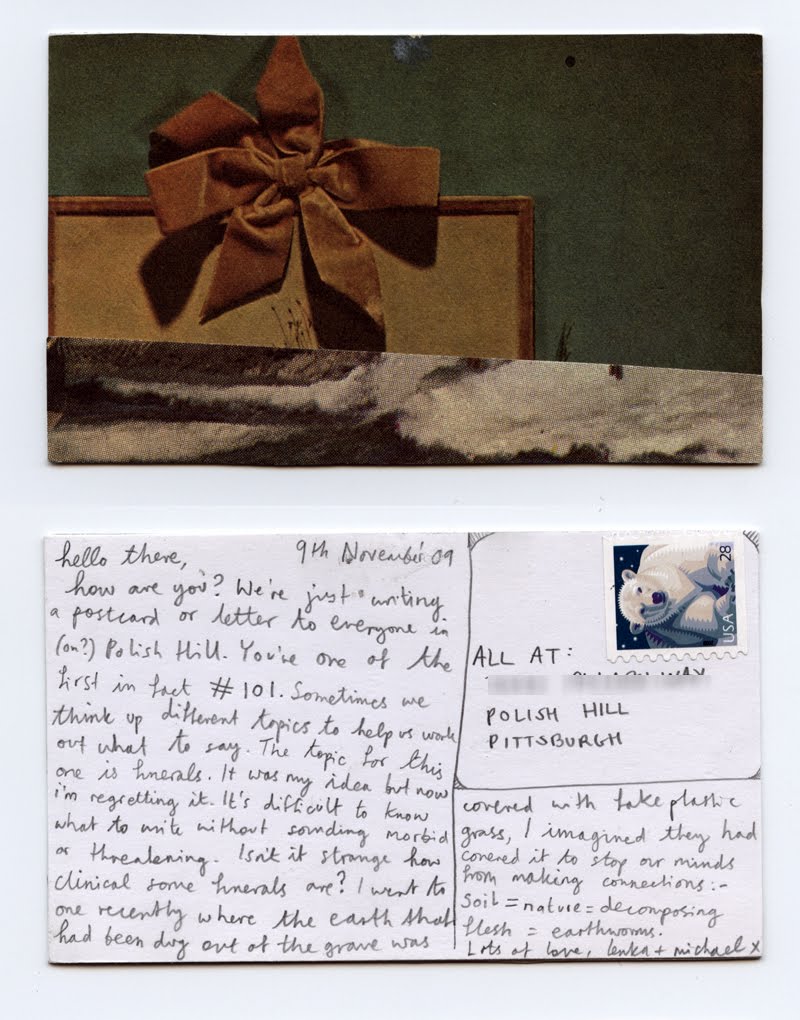 hello there, 9th November 09
how are you? We're just writing
a postcard or letter to everyone in
(on?) Polish Hill. You're one of the
first in fact #101. Sometimes we
think up different topics to help us work
out what to say. The topic for this
one is funerals. It was my idea but now
i'm regretting it. It's difficult to know
what to write without sounding morbid
or threatening. Isn't it strange how
clinical some funerals are? I went to
one recently where the earth that
had been dug out of the grave was
28
USA
ALL AT:
WAY
POLISH HILL
PITTSBURGH
covered with fake plastic
grass, I imagined they had
covered it to stop our minds
from making connections:-
Soil = nature = decomposing
flesh = earthworms.
Lots of love, lenka + michael x